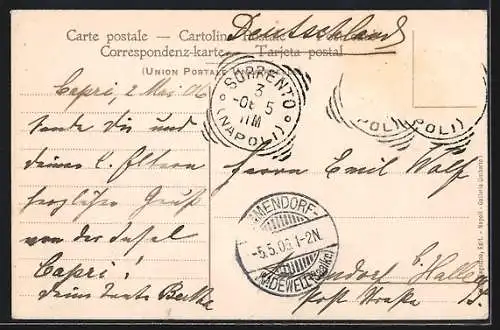 Carte postale — Cartolina postale —
Correspondenz-karte — Tarjeta postal
(UNION POSTALE
Deutschland
SORRENTO
3
-06 5
11M
(NAPOLI)
POLI)
POLI)
Capri, 2 Mai 06
Sende dir und
deinen l. Eltern
herzlichen Gruß
von der Insel
Capri!
deine Tante Bertha
Herrn Emil Wolf
MMENDORF-
-5.5.06 1-2N.
RADEWELL (Saalkr.)
ndorf b/Halle
Post Straße
Napoli - Galleria Umberto I